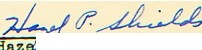 Hazel P. Shields
Haze